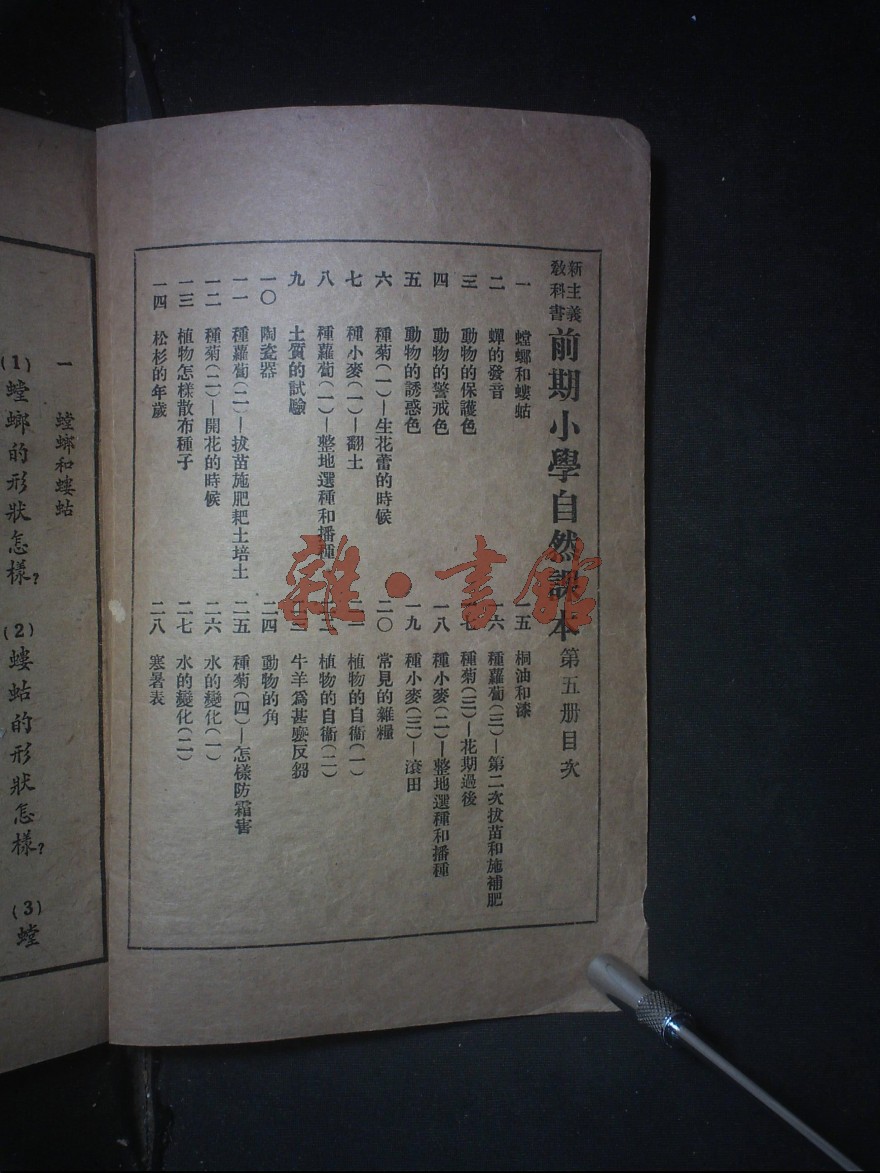 新主義教科書 前期小學自然課本 第五册目次
一 螳螂和螻蛄
二 蟬的發音
三 動物的保護色
四 動物的警戒色
五 動物的誘惑色
六 種菊(一)—生花蕾的時候
七 種小麥(一)—翻土
八 種蘿蔔(一)—整地選種和播種
九 土質的試驗
一〇 陶瓷器
一一 種蘿蔔(二)—拔苗施肥耙土培土
一二 種菊(二)—開花的時候
一三 植物怎樣散布種子
一四 松杉的年歲
一五 桐油和漆
一六 種蘿蔔(三)—第二次拔苗和施補肥
一七 種菊(三)—花期過後
一八 種小麥(二)—整地選種和播種
一九 種小麥(三)—滾田
二〇 常見的雜糧
二一 植物的自衞(一)
二二 植物的自衞(二)
二三 牛羊爲甚麼反芻
二四 動物的角
二五 種菊(四)—怎樣防霜害
二六 水的變化(一)
二七 水的變化(二)
二八 寒暑表
一 螳螂和螻蛄
(1)螳螂的形狀怎樣? (2)螻蛄的形狀怎樣? (3)螳
雜·書館